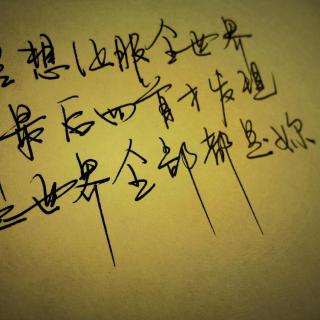 想征服全世界
最后回首才发现
世界全部都是妳